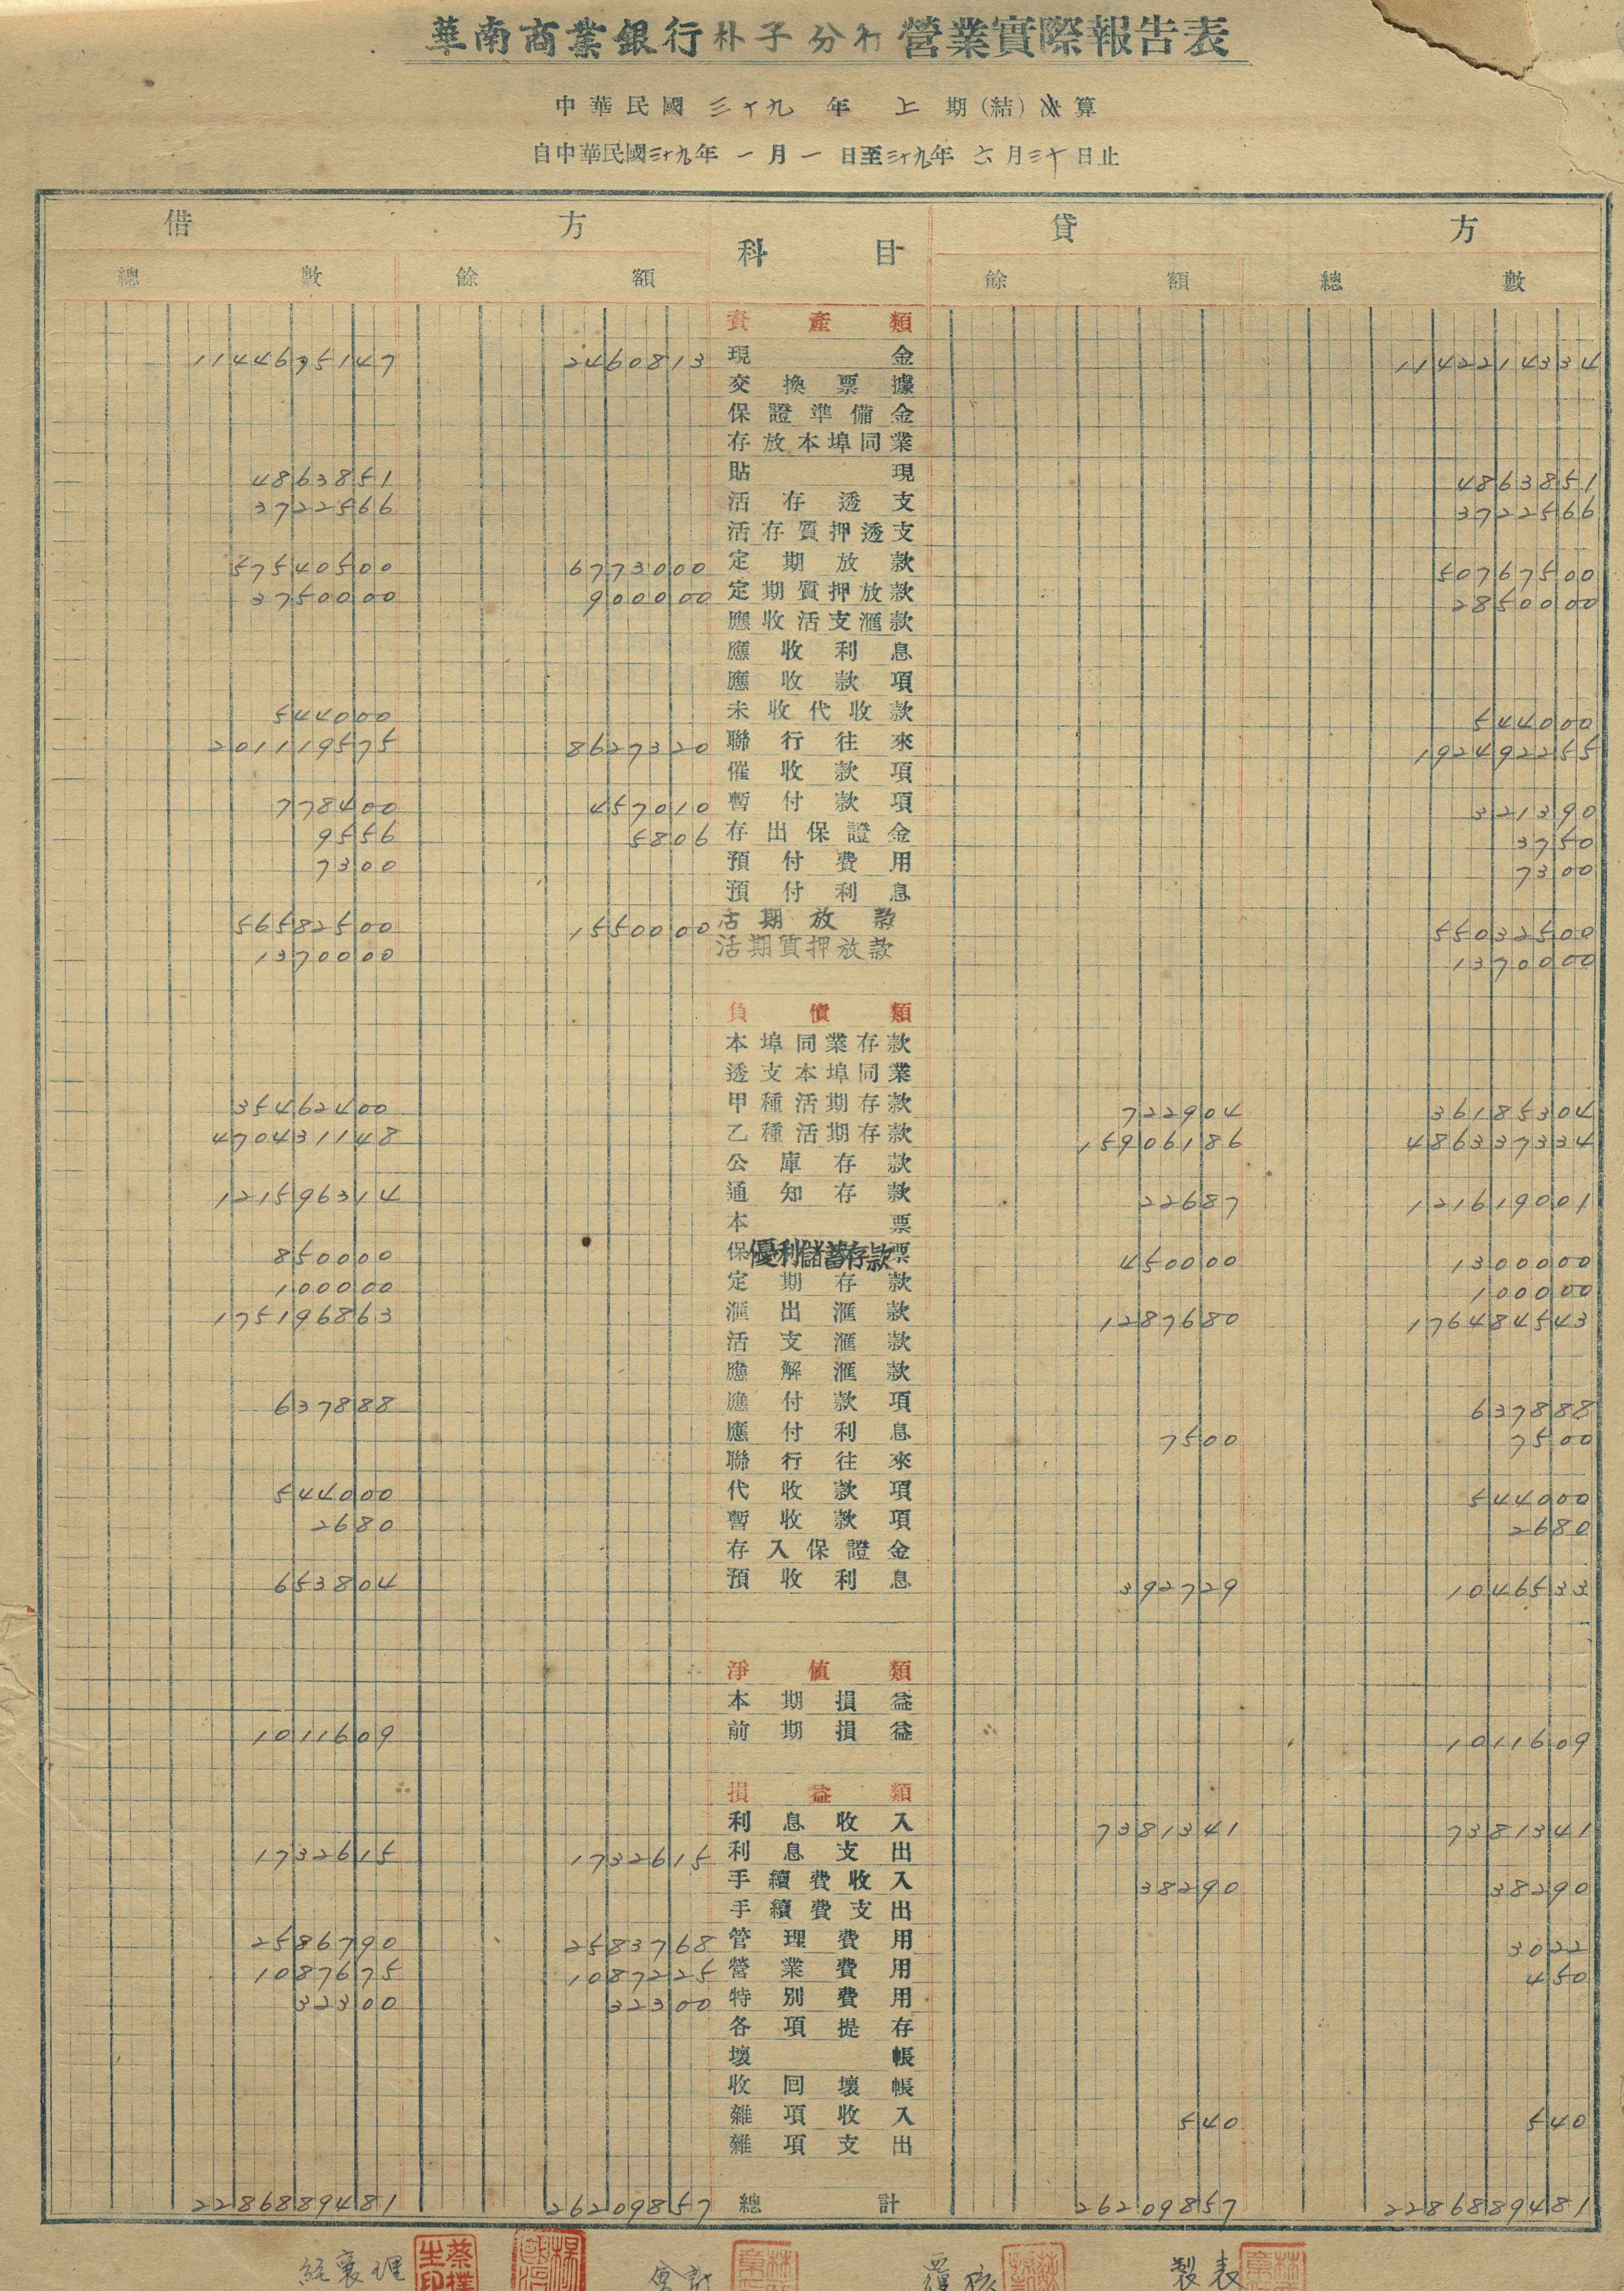 華南商業銀行朴子分行營業實際報告表
中華民國三十九年上期(結)決算
自中華民國三十九年一月一日至三十九年六月三十日止
借方 科目 貸方
總數 餘額 餘額 總數
資產類
1144675147 2460813 現金 1142214334
交換票據
保證準備金
存放本埠同業
4863851 貼現 4863851
3722566 活存透支 3722566
活存質押透支
57540500 6773000 定期放款 50767500
3750000 900000 定期質押放款 2850000
應收活支滙款
應收利息
應收款項
544000 未收代收款 544000
201119575 8627320 聯行往來 192492255
催收款項
778400 457010 暫付款項 321390
9556 5806 存出保證金 3750
7300 預付費用 7300
預付利息
56582500 1550000 活期放款 55032500
1370000 活期質押放款 1370000
負債類
本埠同業存款
透支本埠同業
35462400 甲種活期存款 722904 36185304
470431148 乙種活期存款 15906186 486337334
公庫存款
121596314 通知存款 22687 121619001
本票
850000 優利儲蓄存款 450000 1300000
100000 定期存款 100000
175196863 滙出滙款 1287680 176484543
活支滙款
應解滙款
637888 應付款項 637888
應付利息 7500 7500
聯行往來
544000 代收款項 544000
2680 暫收款項 2680
存入保證金
653804 預收利息 392729 1046533
淨值類
本期損益
1011609 前期損益 1011609
損益類
利息收入 7381341 7381341
1732615 1732615 利息支出
手續費收入 38290 38290
手續費支出
2586790 2583768 管理費用 3022
1087675 1087225 營業費用 450
32300 32300 特別費用
各項提存
壞帳
收回壞帳
雜項收入 540 540
雜項支出
2286889481 26209857 總計 26209857 2286889481
經襄理 會計 覆核 製表